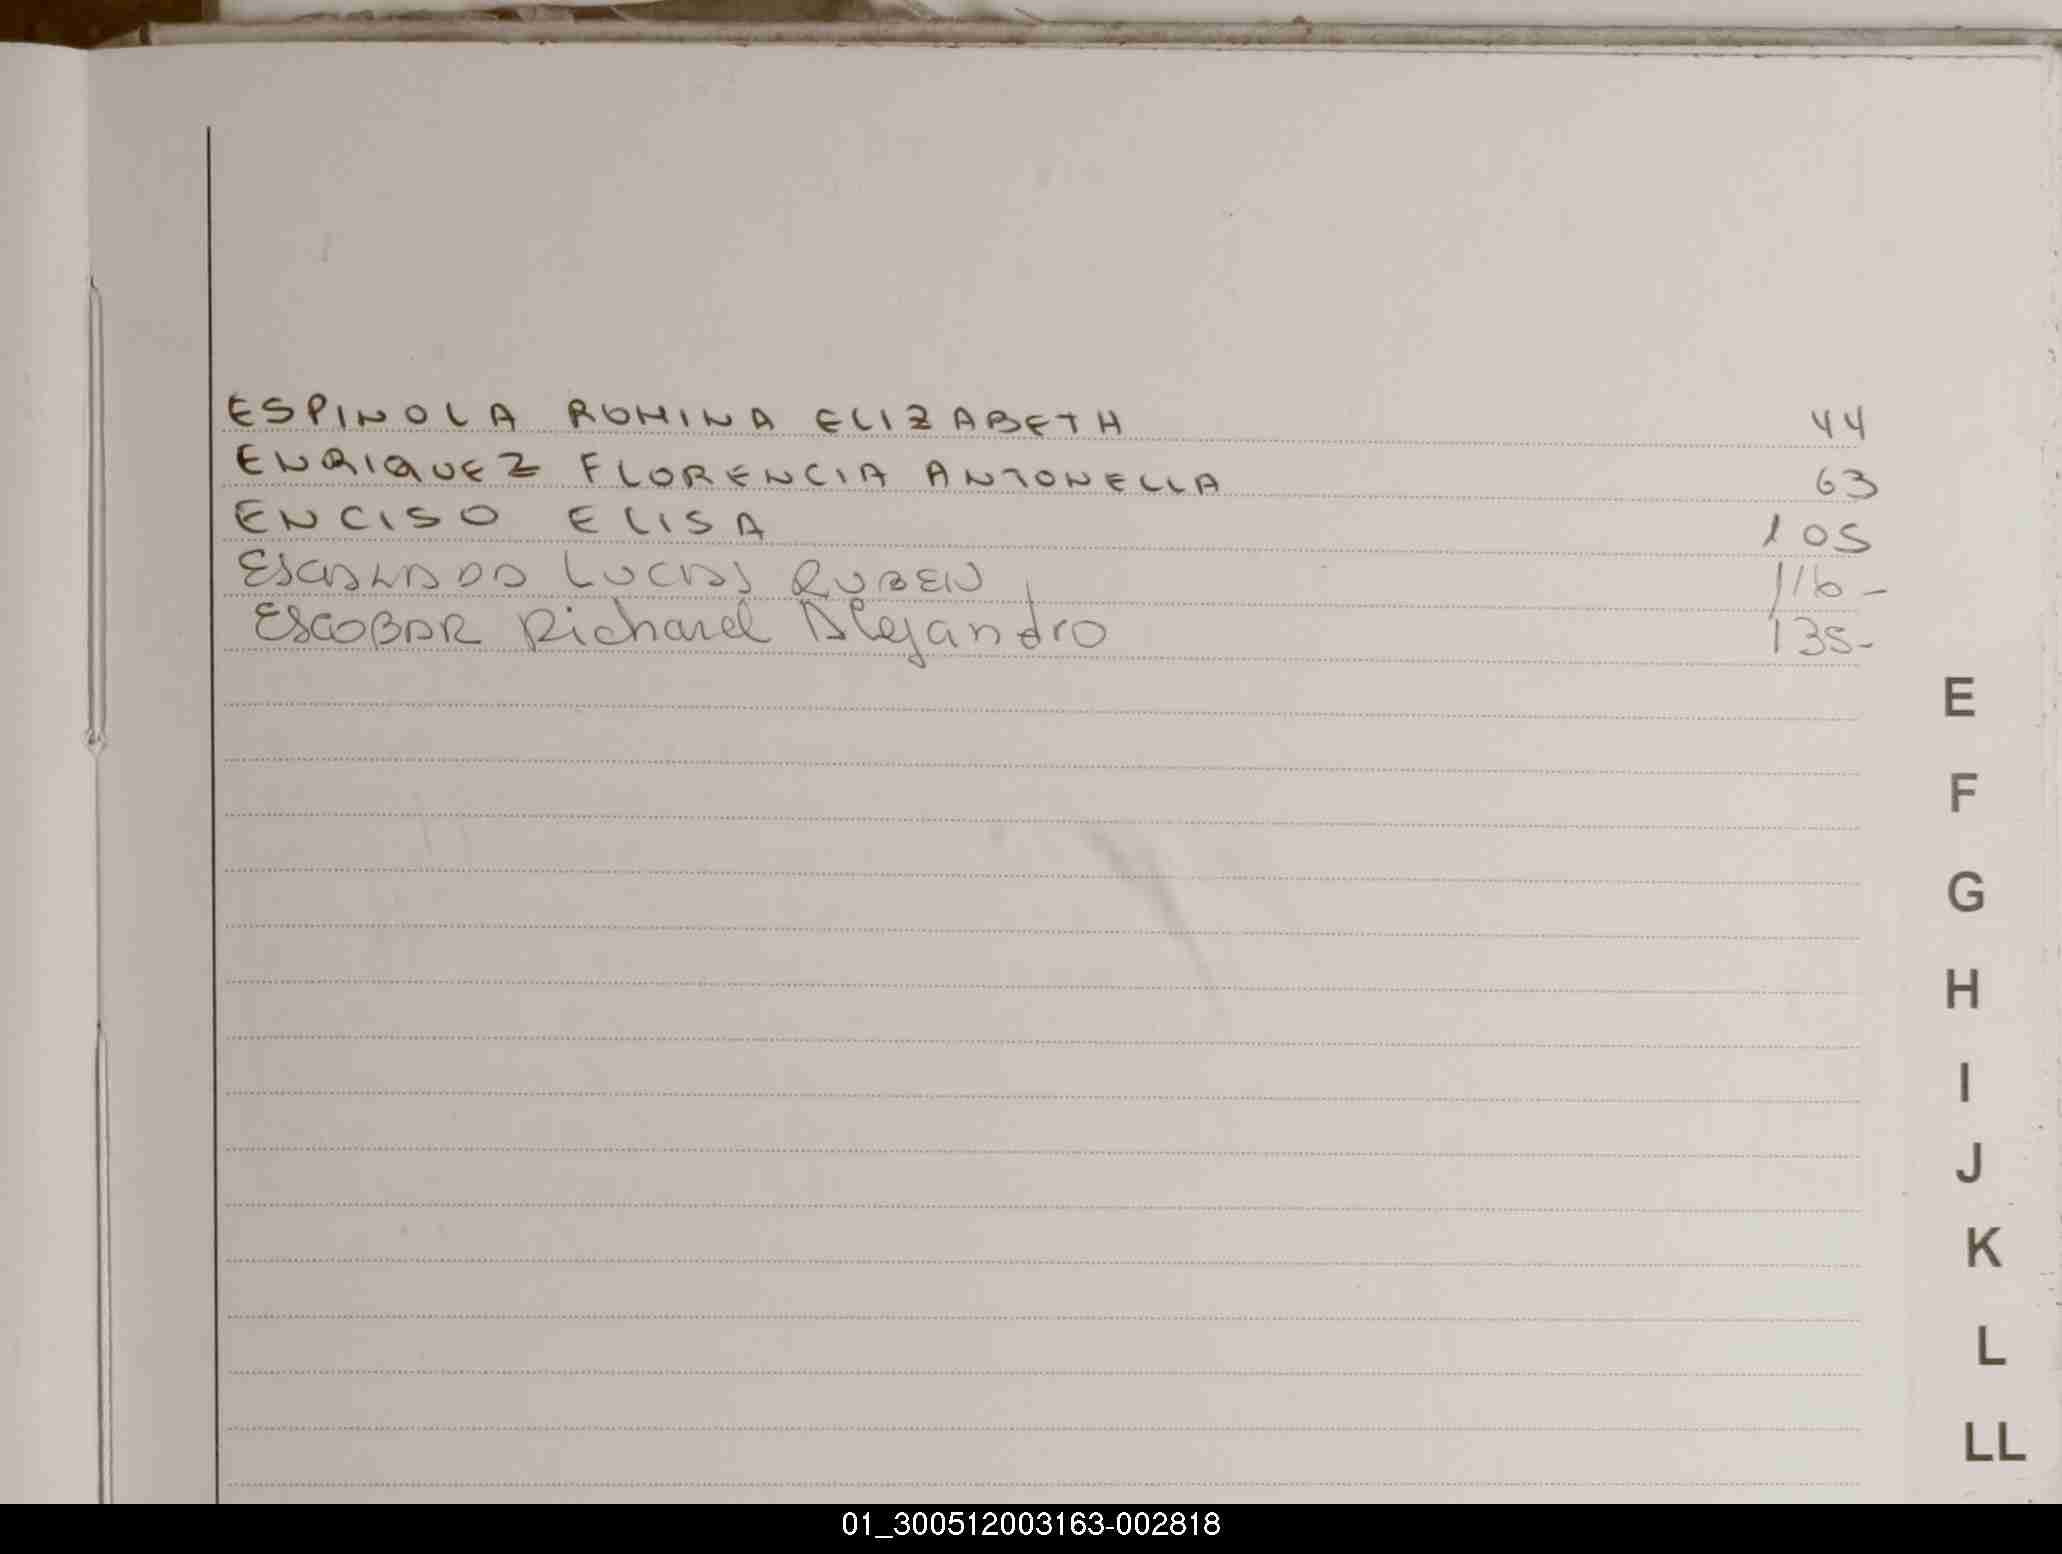 ESPINOLA ROMINA ELIZABETH 44
ENRIQUEZ FLORENCIA ANTONELLA 63
ENCISO ELISA 105
ESCALADA LUCAS RUBEN 116-
ESCOBAR Richard Alejandro 135-
E
F
G
H
I
J
K
L
LL
01_300512003163-002818